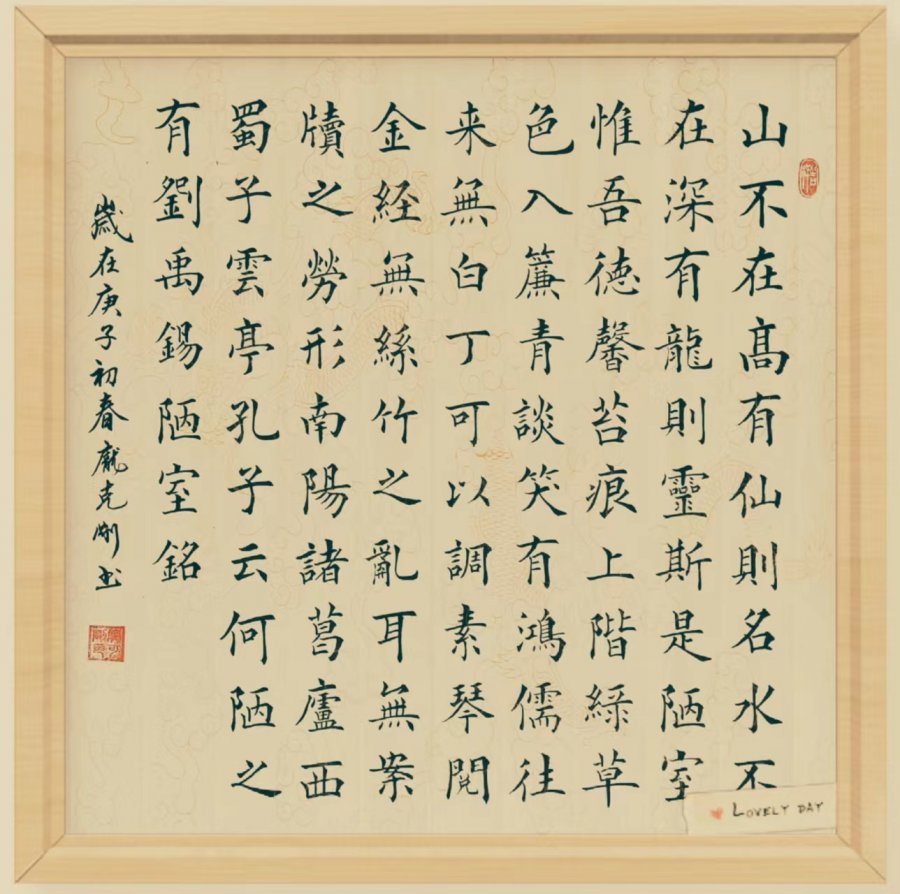 山不在高有仙則名水不
在深有龍則靈斯是陋室
惟吾徳馨苔痕上階緑草
色入簾青談笑有鴻儒往
来無白丁可以調素琴閱
金経無絲竹之亂耳無案
牘之勞形南陽諸葛廬西
蜀子雲亭孔子云何陋之
有劉禹錫陋室銘
歲在庚子初春龐克剛书
LOVELY DAY